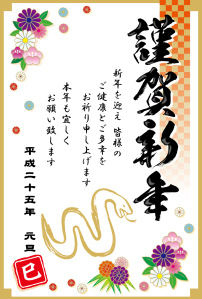 謹賀新年
新年を迎え 皆様の
ご健康とご多幸を
お祈り申し上げます
本年も宜しく
お願い致します
平成二十五年 元旦
巳